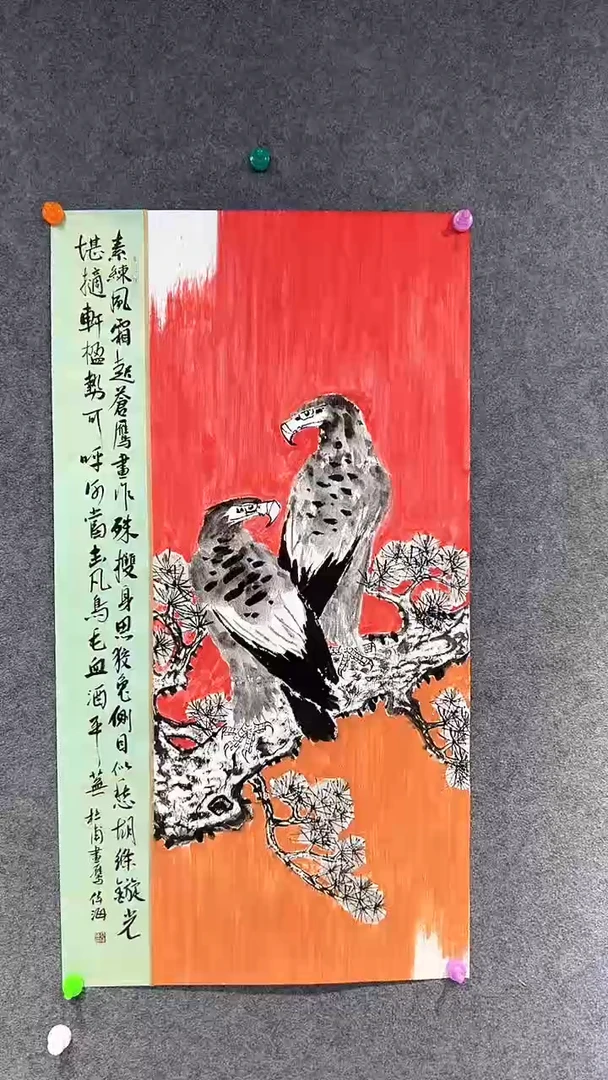 素練風霜起蒼鷹畫作殊㩳身思狡兔側目似愁胡絛鏇光
堪擿軒楹勢可呼何當擊凡鳥毛血洒平蕪
杜甫畫鷹